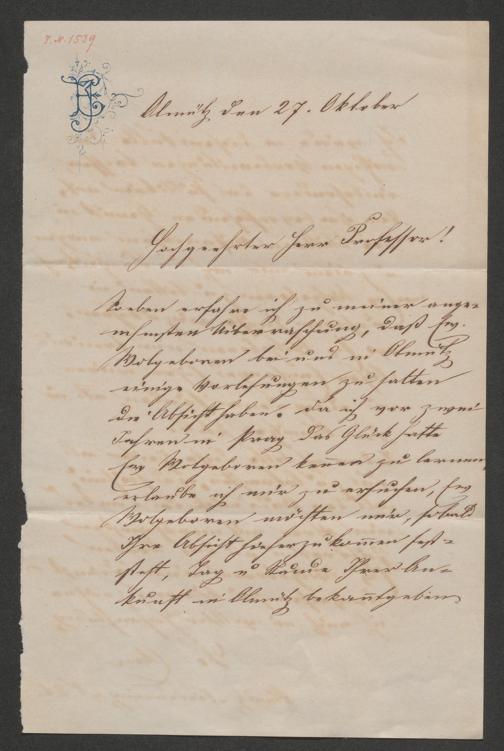 I.N. 1589
Olmütz den 27. Oktober
Hochgeehrter Herr Professor!
Soeben erfahre ich zu meiner ange-
nehmsten Ueberraschung, daß Ew.
Wolgeboren bei uns in Olmütz
einige Vorlesungen zu halten
die Absicht haben. Da ich vor zwei
Jahren in Prag das Glück hatte
Ew Wolgeboren kenen zu lernen,
erlaube ich mir zu ersuchen, Ew
Wolgeboren möchten mir, sobald
Ihre Absicht hieherzukommen fest-
steht, Tag u Stunde Ihrer An-
kunft in Olmütz bekanntgeben